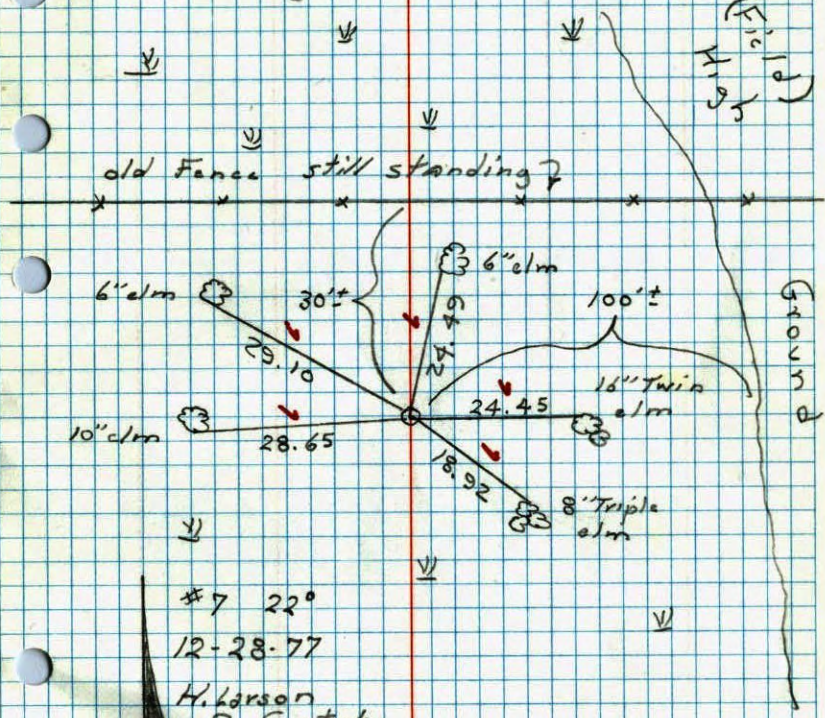 (Field)
High
old Fence still standing?
6" elm
30'±
6" elm
24.49
100'±
Ground
29.10
16" Twin
elm
24.45
10" elm
28.65
18.92
8" Triple
elm
#7 22°
12-28-77
H. Larson